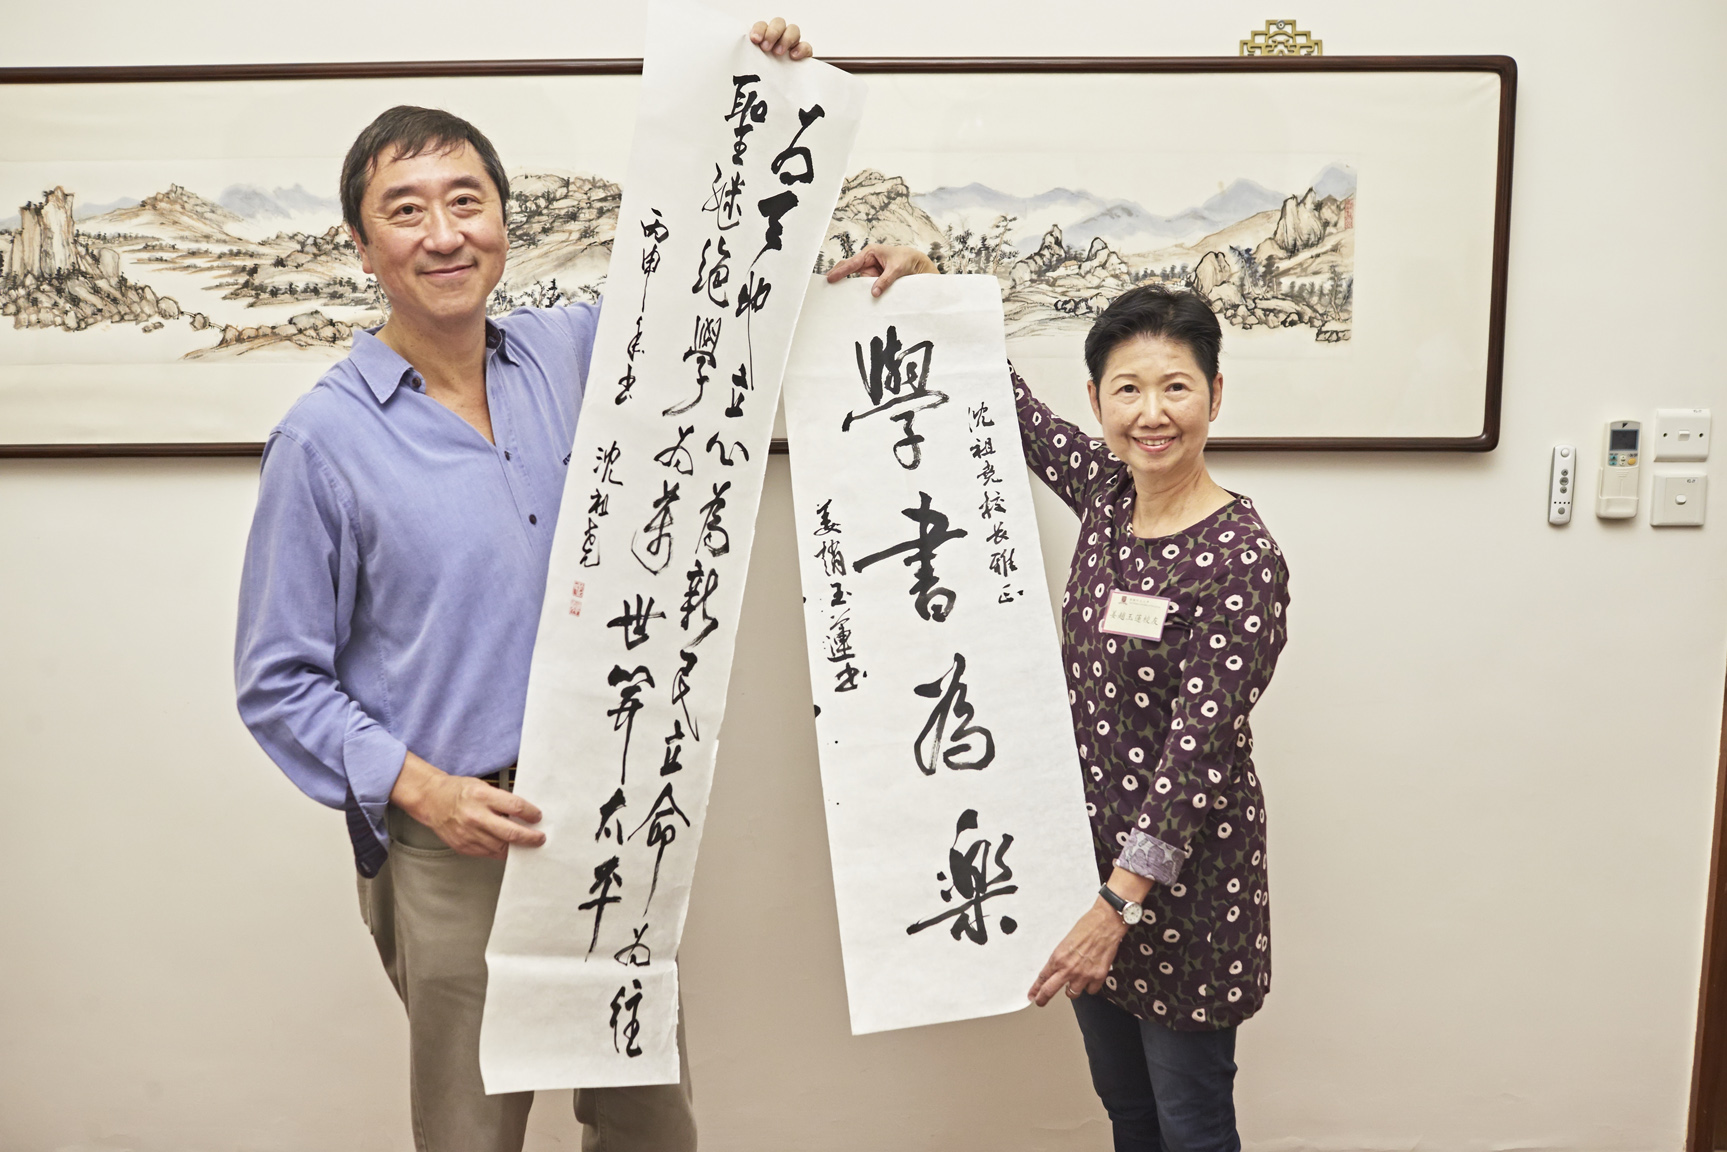 為天地立心為新民立命為往
聖繼絕學為萬世開太平
丙申年書 沈祖堯
沈祖堯校長雅正
學書為樂
姜趙玉蓮書
姜趙玉蓮校友